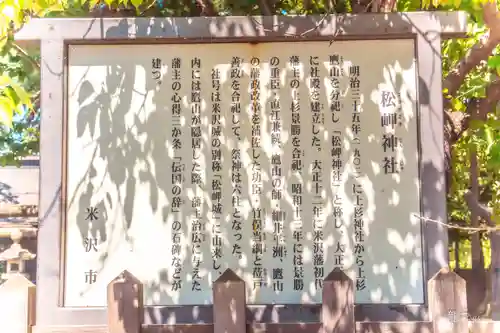 松岬神社
明治三十五年(一九〇二)に上杉神社から上杉
鷹山を分祀し「松岬神社」と称し、大正
に社殿を建立した。大正十二年に米沢藩初代
藩主の上杉景勝を合祀、昭和十三年には景勝
の重臣・直江兼続、鷹山の師・細井平洲、鷹山
の藩政改革を補佐した功臣・竹俣当綱と莅戸
善政を合祀して、祭神は六柱となった。
社号は米沢城の別称「松岬城」に由来し、
内には鷹山が隠居した際、藩主治広に与えた
藩主の心得三か条「伝国の辞」の石碑などが
建つ。
米沢市